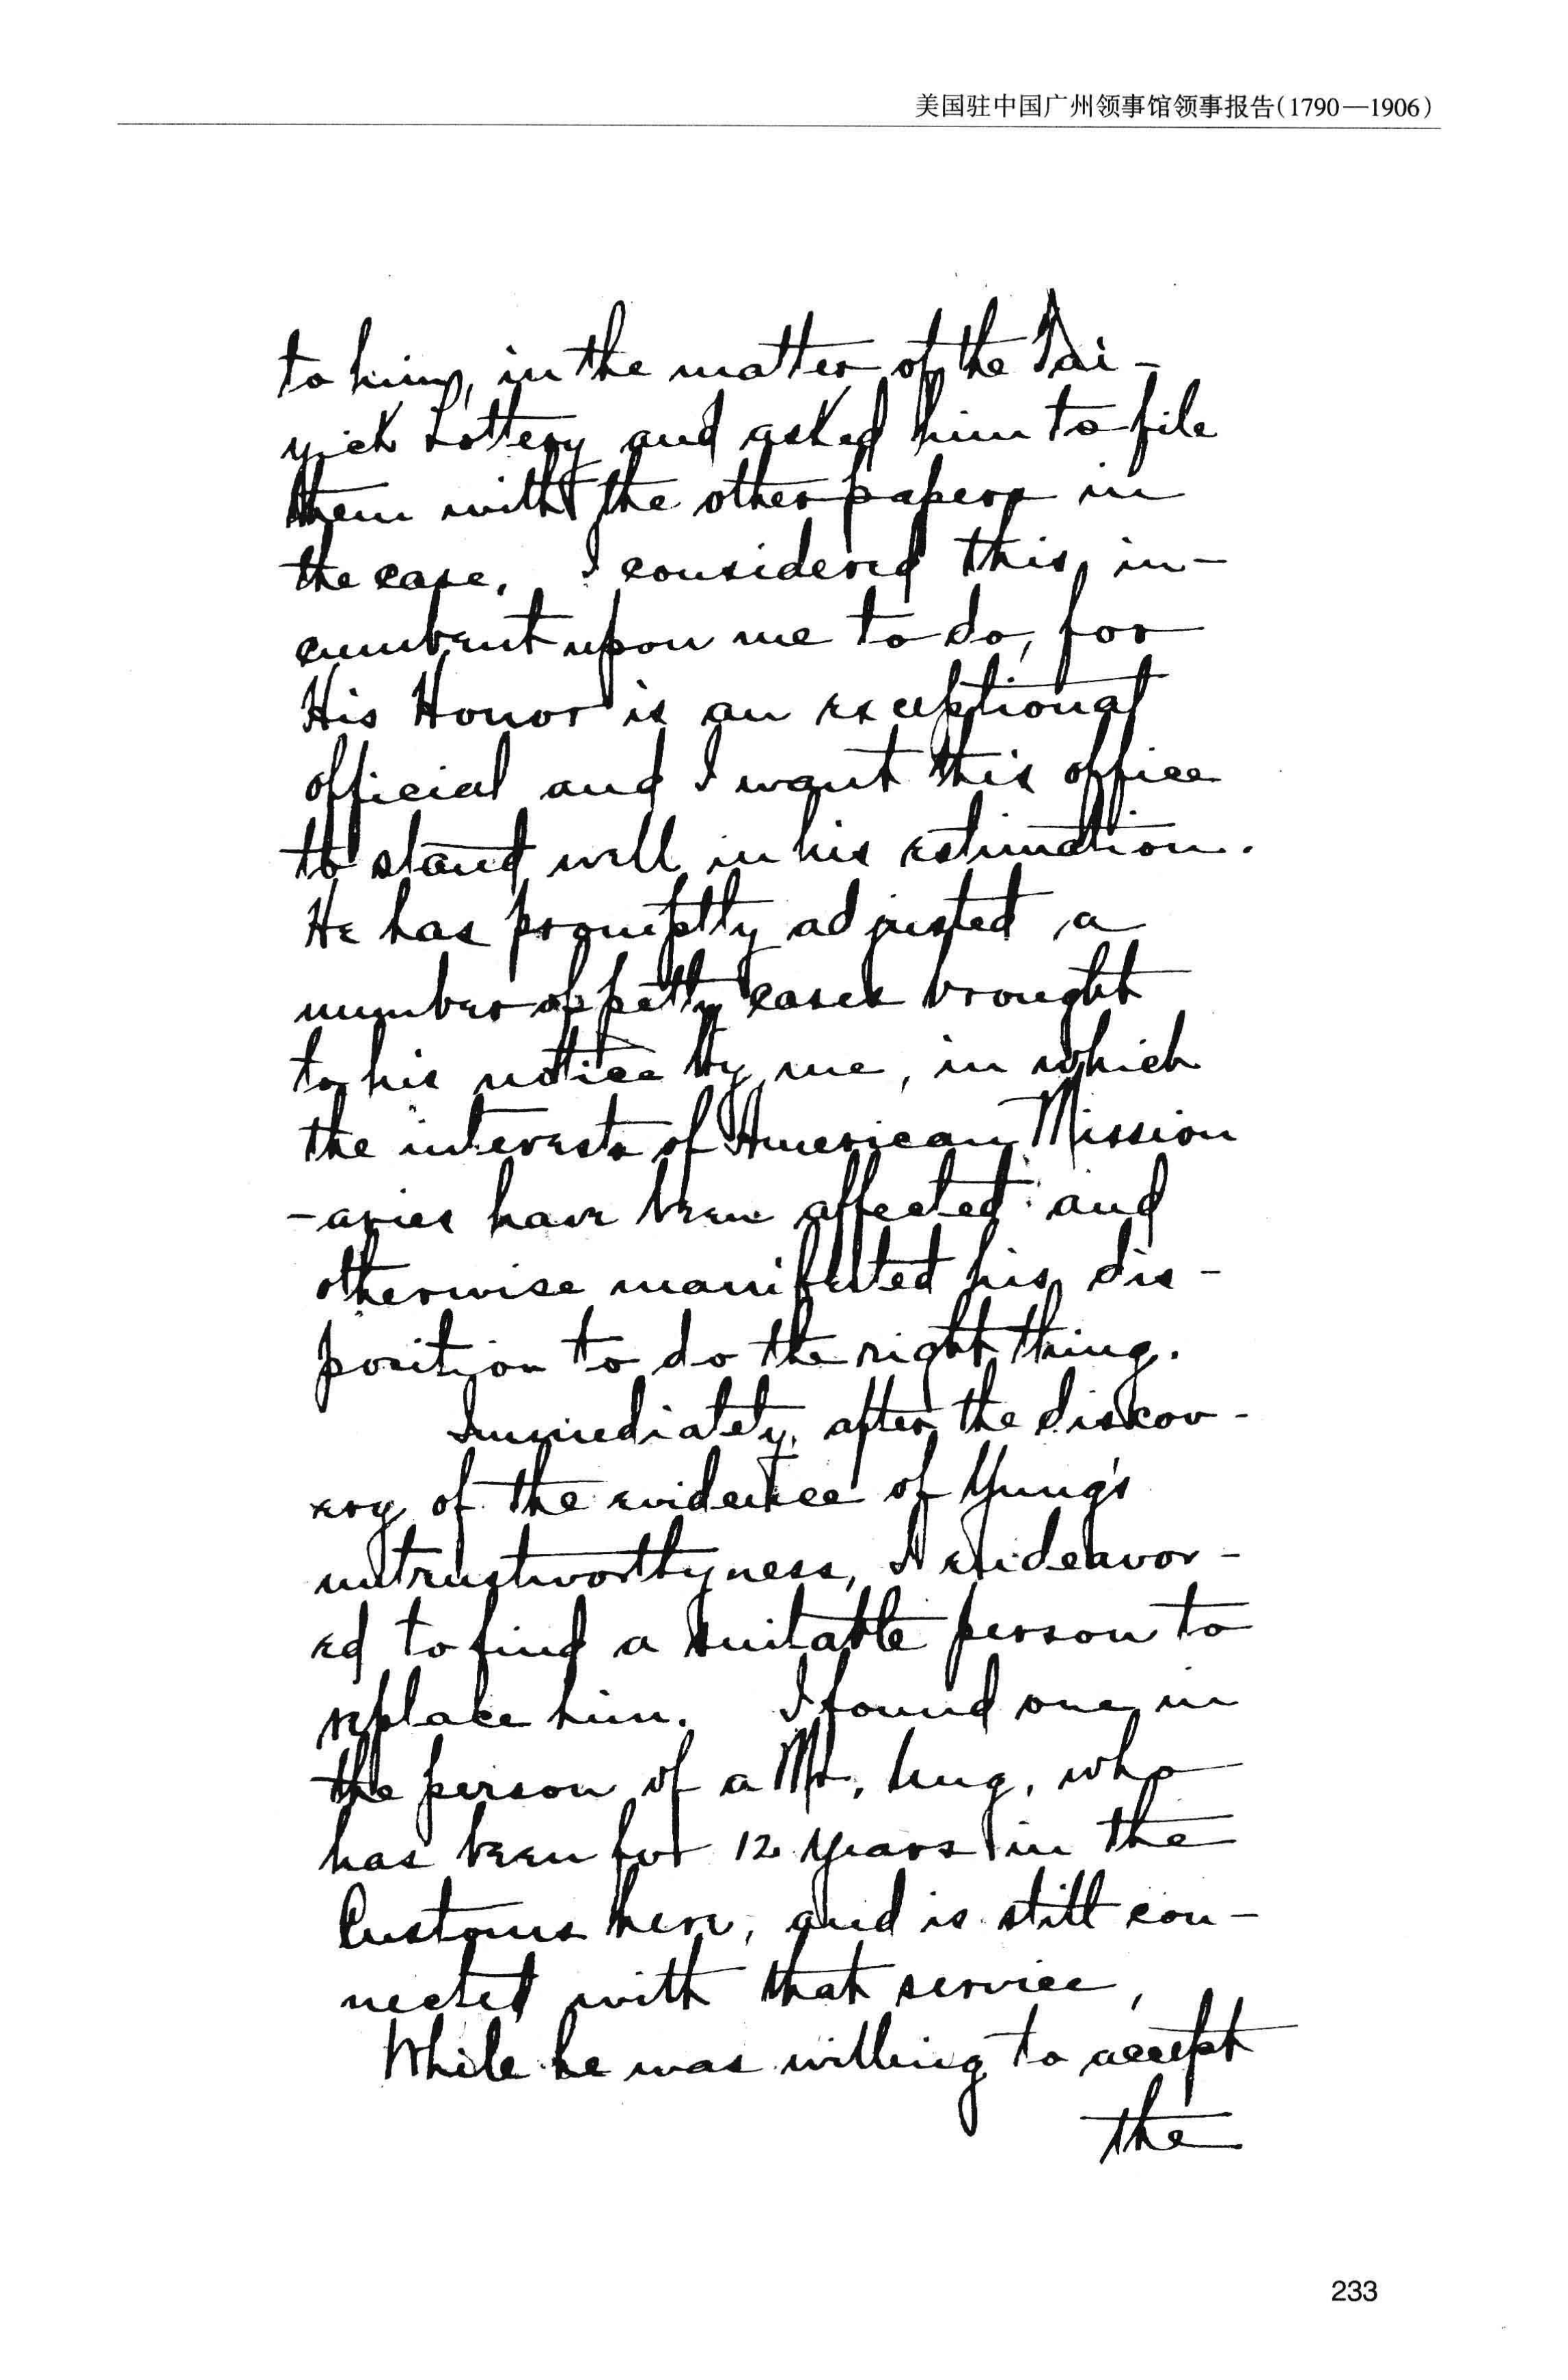 美国驻中国广州领事馆领事报告(1790—1906)
to him, in the matter of the Tai-
yick Lottery and asked him to file
them with the other papers in
the case. I considered this in-
cumbent upon me to do, for
His Honor is an exceptional
official and I want this office
to stand well in his estimation.
He has promptly adjusted a
number of petty cases brought
to his notice by me, in which
the interests of American Mission
-aries have been affected and
otherwise manifested his dis-
position to do the right thing.
Immediately after the discov-
ery of the evidence of Yung's
untrustworthyness, I endeavor-
ed to find a suitable person to
replace him. I found one in
the person of a Mr. , who
has been for 12 years in the
Customs here, and is still con-
nected with that service,
While he was willing to accept
the
233